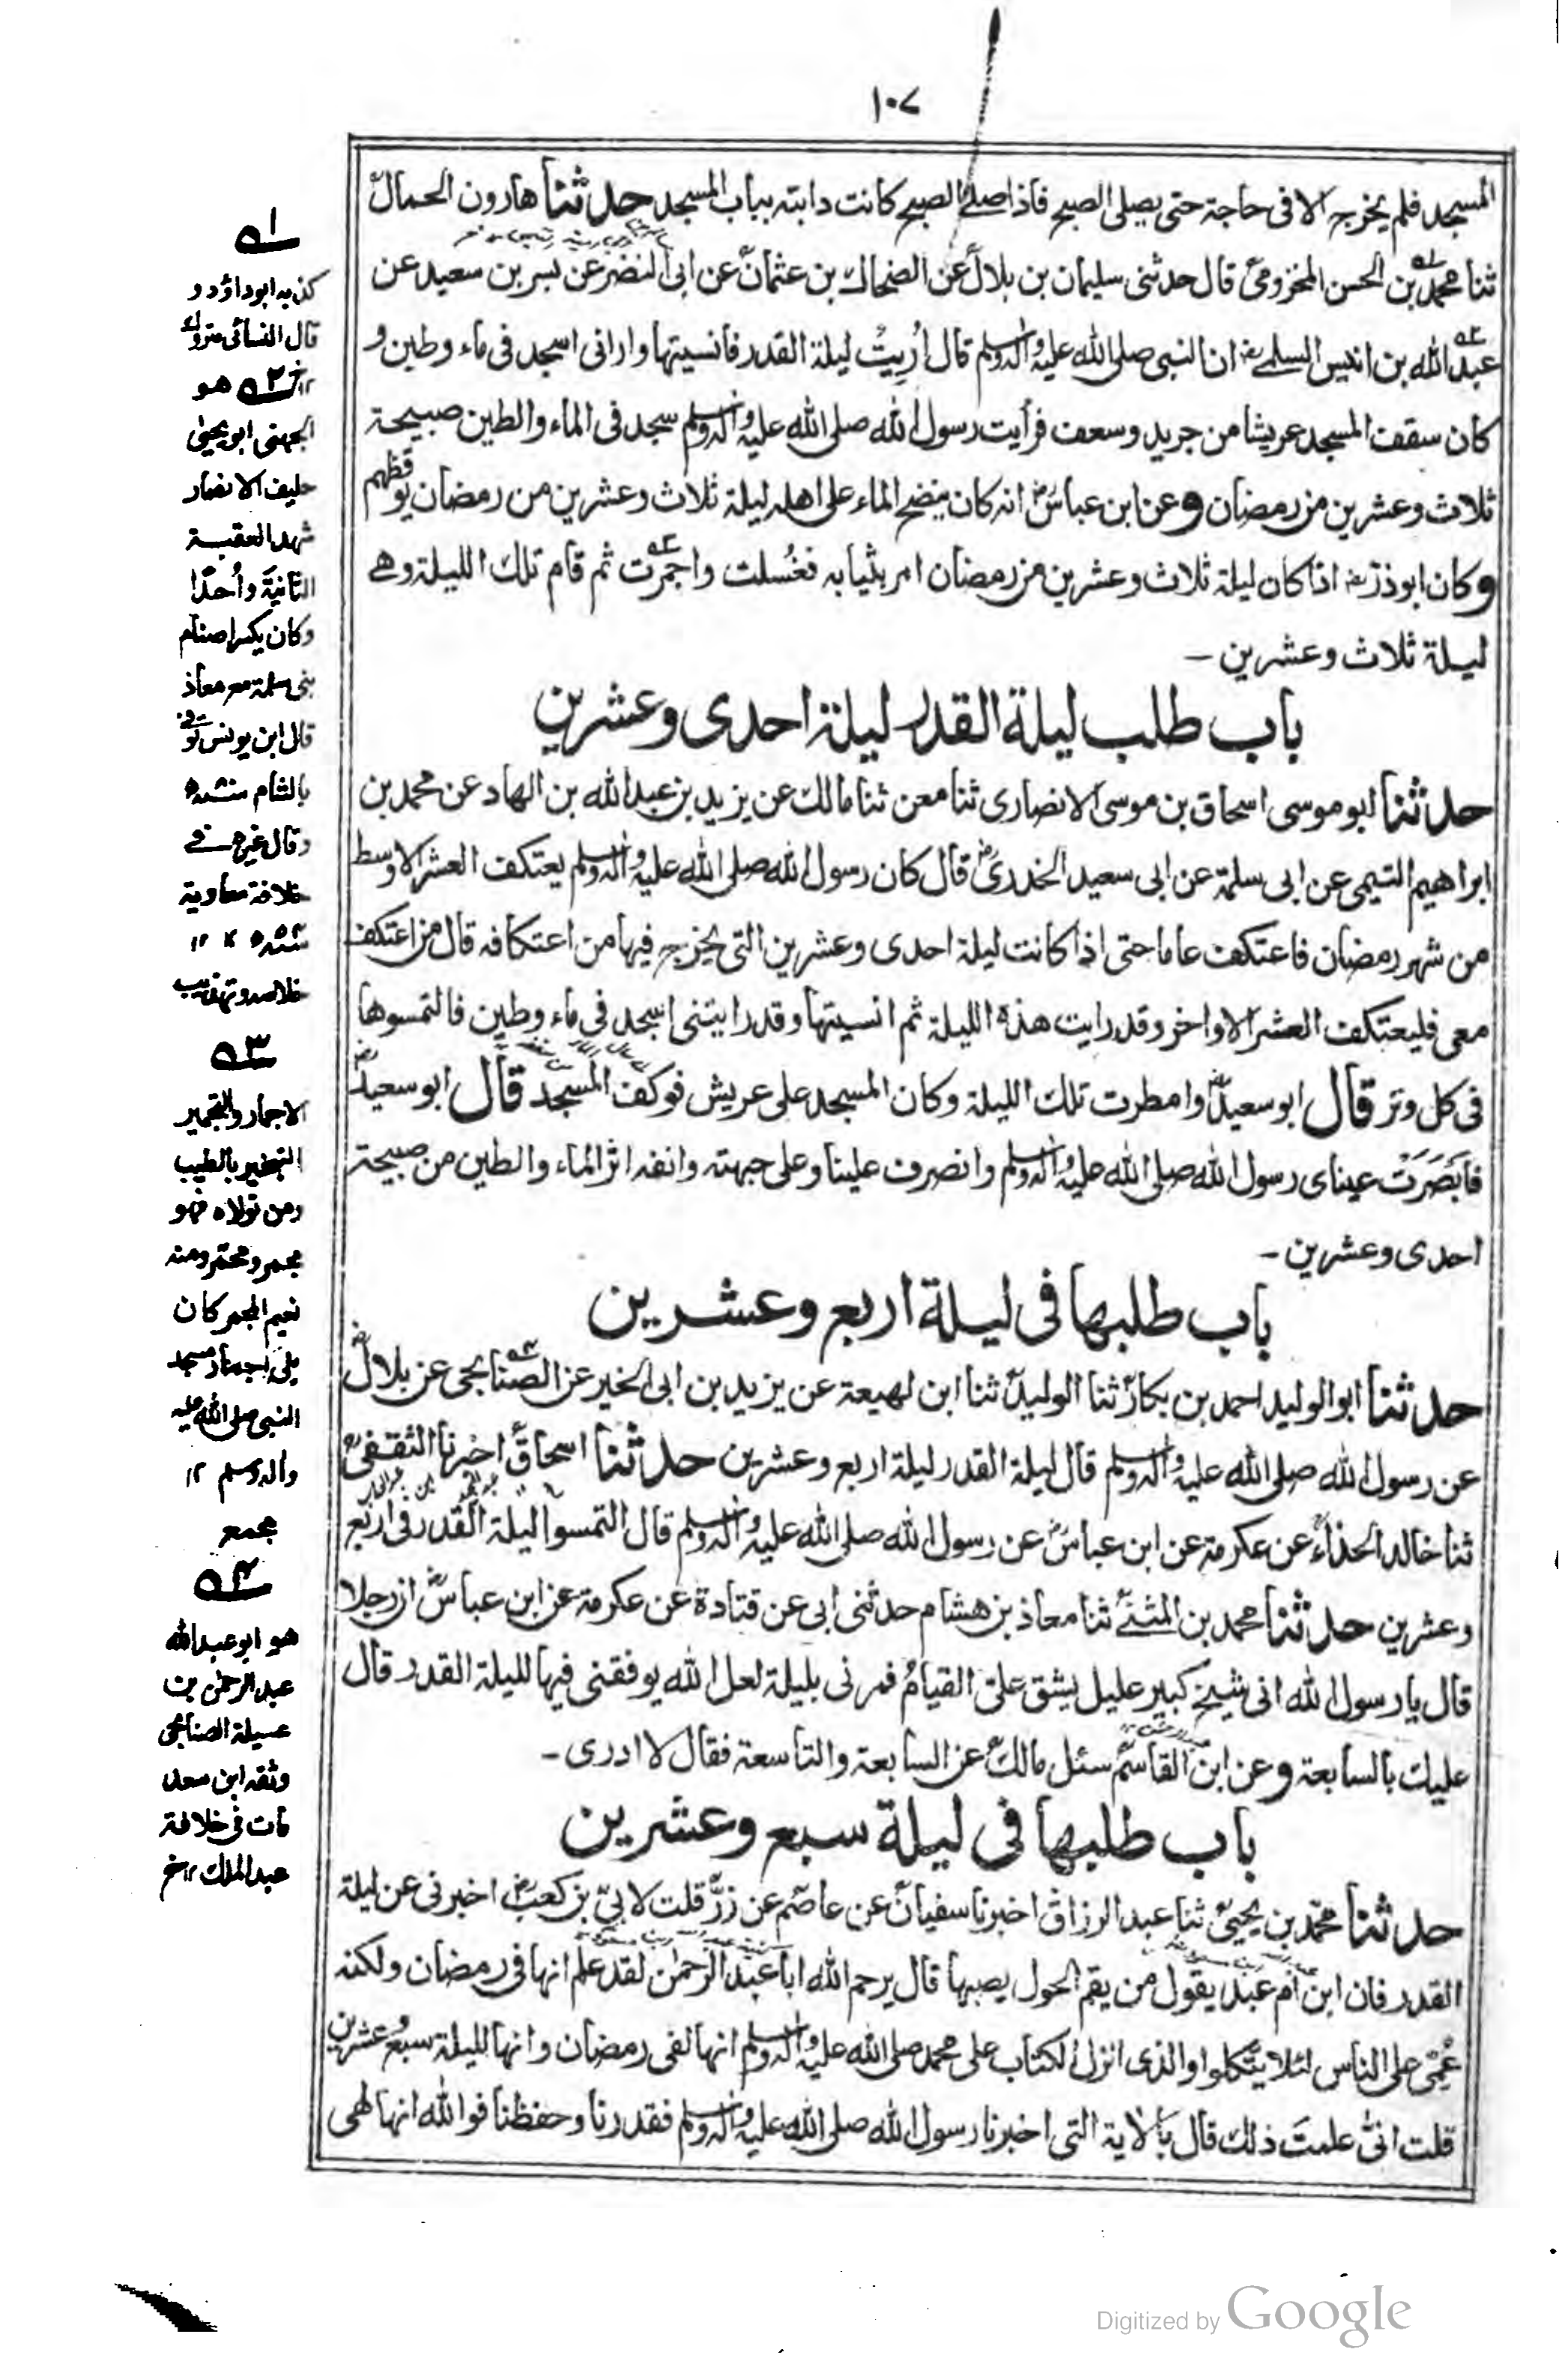 ١٠٧
المسجد فلم يخرج الا فى حاجة حتى يصلى الصبح فاذا صلے الصبح كانت دابته بباب المسجد حدثنا هارون الحمالؒ
ثنا محمد بن الحسن المخزومىؒ قال حدثنى سليمان بن بلالؒ عن الضحاك بن عثمانؒ عن ابى النضرؒ عن بسر بن سعيد عن
عبد الله بن انيس السلمےؓ ان النبى صلى الله عليه واله وسلم قال اُرِيتُ ليلة القدر فانسيتها وارانى اسجد فى ماء وطين و
كان سقف المسجد عريشا من جريد وسعف فرأيت رسول الله صلى الله عليه واله وسلم سجد فى الماء والطين صبيحة
ثلاث وعشرين من رمضان وعن ابن عباسؓ انه كان ينضح الماء على اهله ليلة ثلاث وعشرين من رمضان يوقظهم
وكان ابوذرؓ اذا كان ليلة ثلاث وعشرين من رمضان امر بثيابه فغُسلت واجمرت ثم قام تلك الليلة وهے
ليلة ثلاث وعشرين ـ
باب طلب ليلة القدر ليلة احدى وعشرين
حدثنا ابو موسى اسحاق بن موسى الانصارى ثنا معن ثنا مالك عن يزيد بن عبد الله بن الهاد عن محمد بن
ابراهيم التيمى عن ابى سلمة عن ابى سعيد الخدرىؓ قال كان رسول الله صلى الله عليه واله وسلم يعتكف العشر الاوسط
من شهر رمضان فاعتكف عاما حتى اذا كانت ليلة احدى وعشرين التى يخرج فيها من اعتكافه قال من اعتكف
معى فليعتكف العشر الاواخر وقد رايت هذه الليلة ثم انسيتها وقد رايتنى اسجد فى ماء وطين فالتمسوها
فى كل وتر قال ابو سعيدؓ وامطرت تلك الليلة وكان المسجد على عريش فوكف المسجد قال ابو سعيدؓ
فابَصَرَت عيناى رسول الله صلى الله عليه واله وسلم وانصرف علينا وعلى جبهته وانفه اثر الماء والطين من صبيحة
احدى وعشرين ـ
باب طلبها فى ليلة اربع وعشرين
حدثنا ابو الوليد احمد بن بكارؒ ثنا الوليدؒ ثنا ابن لهيعة عن يزيد بن ابى الخير عن الصنابحى عن بلالؓ
عن رسول الله صلى الله عليه واله وسلم قال ليلة القدر ليلة اربع وعشرين حدثنا اسحاقؒ اخبرنا الثقفىؒ
ثنا خالد الحذاءؒ عن عكرمة عن ابن عباسؓ عن رسول الله صلى الله عليه واله وسلم قال التمسوا ليلة القدر فى اربع
وعشرين حدثنا محمد بن المثنےؒ ثنا معاذ بن هشام حدثنى ابى عن قتادة عن عكرمة عن ابن عباسؓ ان رجلا
قال يا رسول الله انى شيخ كبير عليل يشق علىّ القيامُ فمرنى بليلة لعل الله يوفقنى فيها لليلة القدر قال
عليك بالسابعة وعن ابن القاسمؒ سئل مالكؒ عن السابعة والتاسعة فقال لا ادرى ـ
باب طلبها فى ليلة سبع وعشرين
حدثنا محمد بن يحيىؒ ثنا عبد الرزاقؒ اخبرنا سفيانؒ عن عاصمؒ عن زرؒ قلت لابىّ بن كعبؓ اخبرنى عن ليلة
القدر فان ابن ام عبد يقول من يقم الحول يصبها قال يرحم الله ابا عبد الرحمٰن لقد علم انها فى رمضان ولكنه
عُمِّى على الناس لئلا يتّكلوا والذى انزل الكتاب على محمد صلى الله عليه واله وسلم انها لفى رمضان وانها لليلة سبع وعشرين
قلت انىّٰ علمتَ ذلك قال بالاية التى اخبرنا رسول الله صلى الله عليه واله وسلم فقدرنا وحفظنا فوالله انها لهى
١ه
كذبه ابو داؤد و
قال النسائى متروك
١٢ خ ٢ه هو
الجهنى ابو يحيىٰ
حليف الانصار
شهد العقبة
الثانية واُحدًا
وكان يكسر اصنام
بنى سلمة مع معاذ
قال ابن يونس توفى
بالشام سنة ٨٠ه
وقال غيره فے
خلافة معاوية
سنة ٥٤ه ١٢
خلاصه وتهذيب
٣ه
الاجمار والتجمير
التبخير بالطيب
ومن تولاه فهو
مجمر ومجمّر ومنه
نعيم المجمر كان
يلى اجمار مسجد
النبى صلى الله عليه
واله وسلم ١٢
مجمع
٤ه
هو ابو عبد الله
عبد الرحمٰن بن
عسيلة الصنابحى
وثقه ابن سعد
مات فى خلافة
عبد الملك ١٢ خ
Digitized by Google